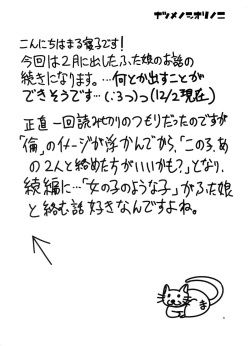 ナツメノシオリノニ
こんにちはまる寝子です!
今回は2月に出したふた娘のお話の
続きになります。…何とか出すことが
できそうです…(.:3っ)っ(12/2現在)
正直一回読みきりのつもりだったのですが
「倫」のイメージが浮かんでから、「このろ、あ
の2人と絡めた方がいいかも?」となり、
続編に…「女の子のような子」がふた娘
と絡む話好きなんですよね。
ま